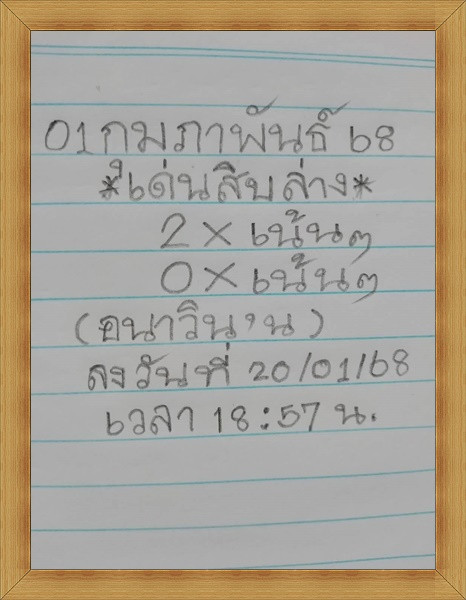 01 กุมภาพันธ์ 68
*เด่นสิบล่าง*
2 X เน้นๆ
0 X เน้นๆ
(อนาวิน'น)
ลงวันที่ 20/01/68
เวลา 18:57 น.